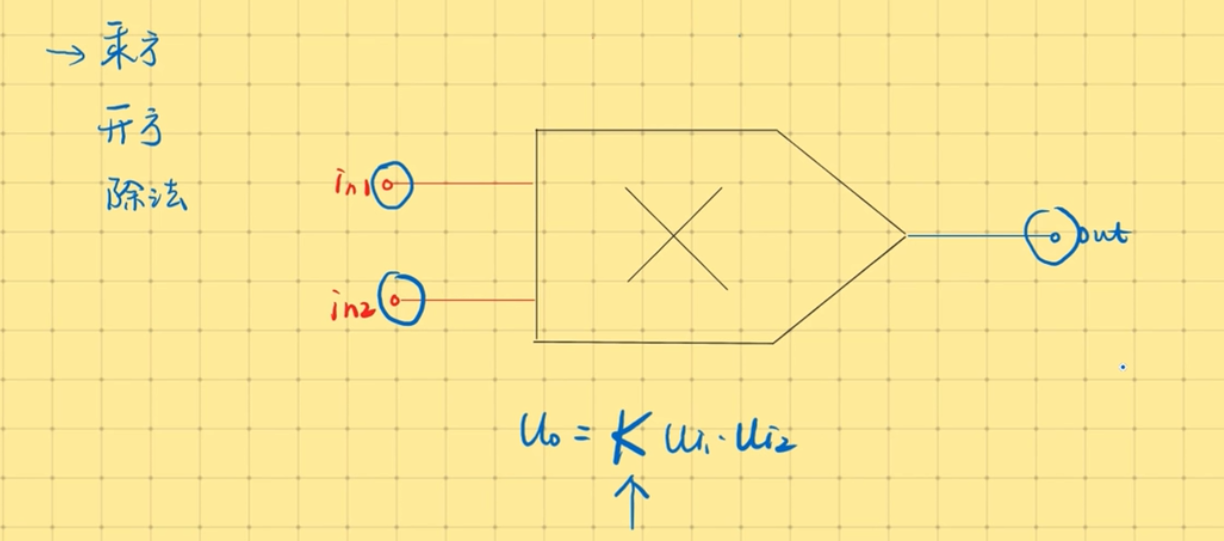 → 乘方
开方
除法
in1
in2
out
U₀ = K Ui₁·Ui₂